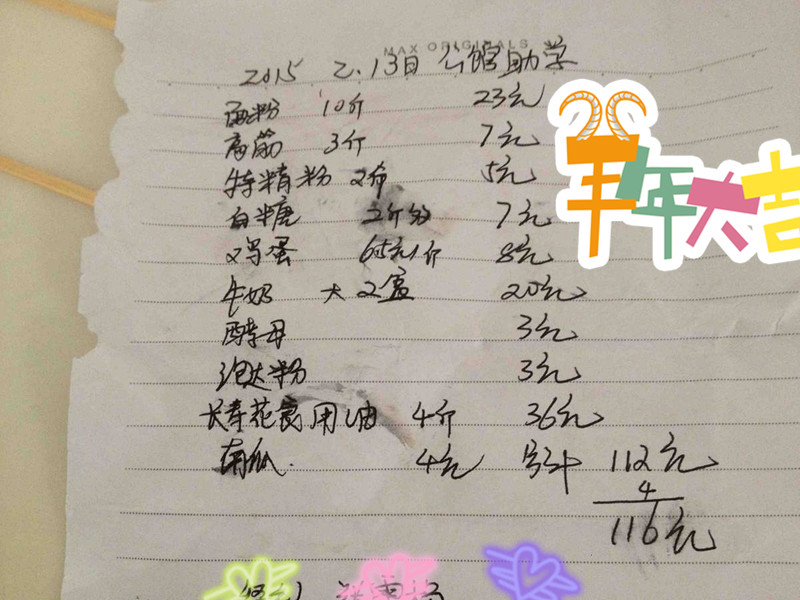 MAX ORIGINALS
2015 2.13日 公馆助学
面粉 10斤 23元
高筋 3斤 7元
特精粉 2斤 5元
白糖 2斤 7元
鸡蛋 6.5元1斤 8元
牛奶 大2盒 20元
酵母 3元
泡达粉 3元
长寿花食用油 4斤 36元
南瓜. 4元 共计 112元
4
116元
羊年大吉